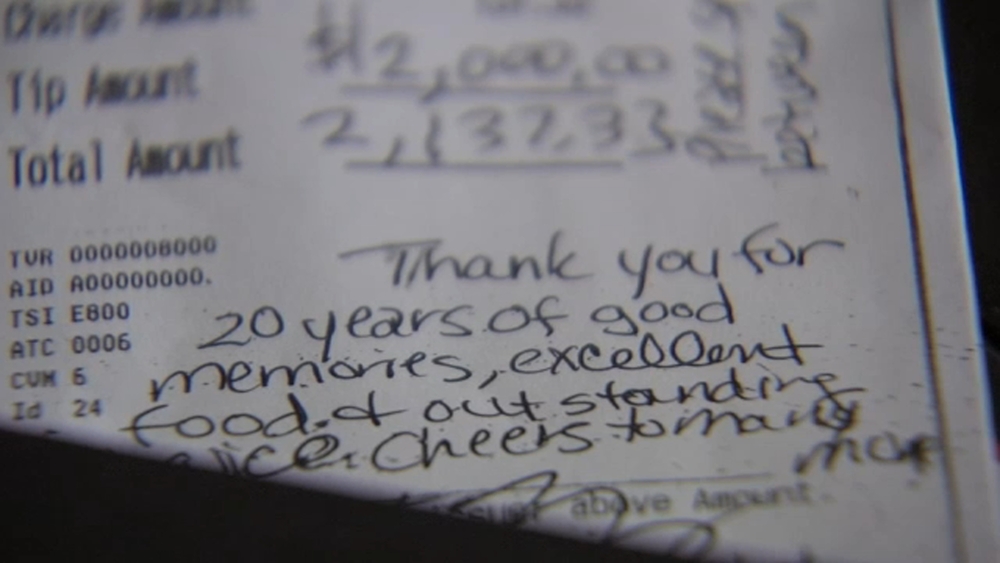 Charge Amount
Tip Amount $2,000.00
Total Amount 2,137.93
TVR 0000008000
AID A00000000.
TSI E800
ATC 0006
CVM 6
Id 24
Thank you for
20 years of good
memories, excellent
food. & outstanding
Cheers to many
more
above Amount